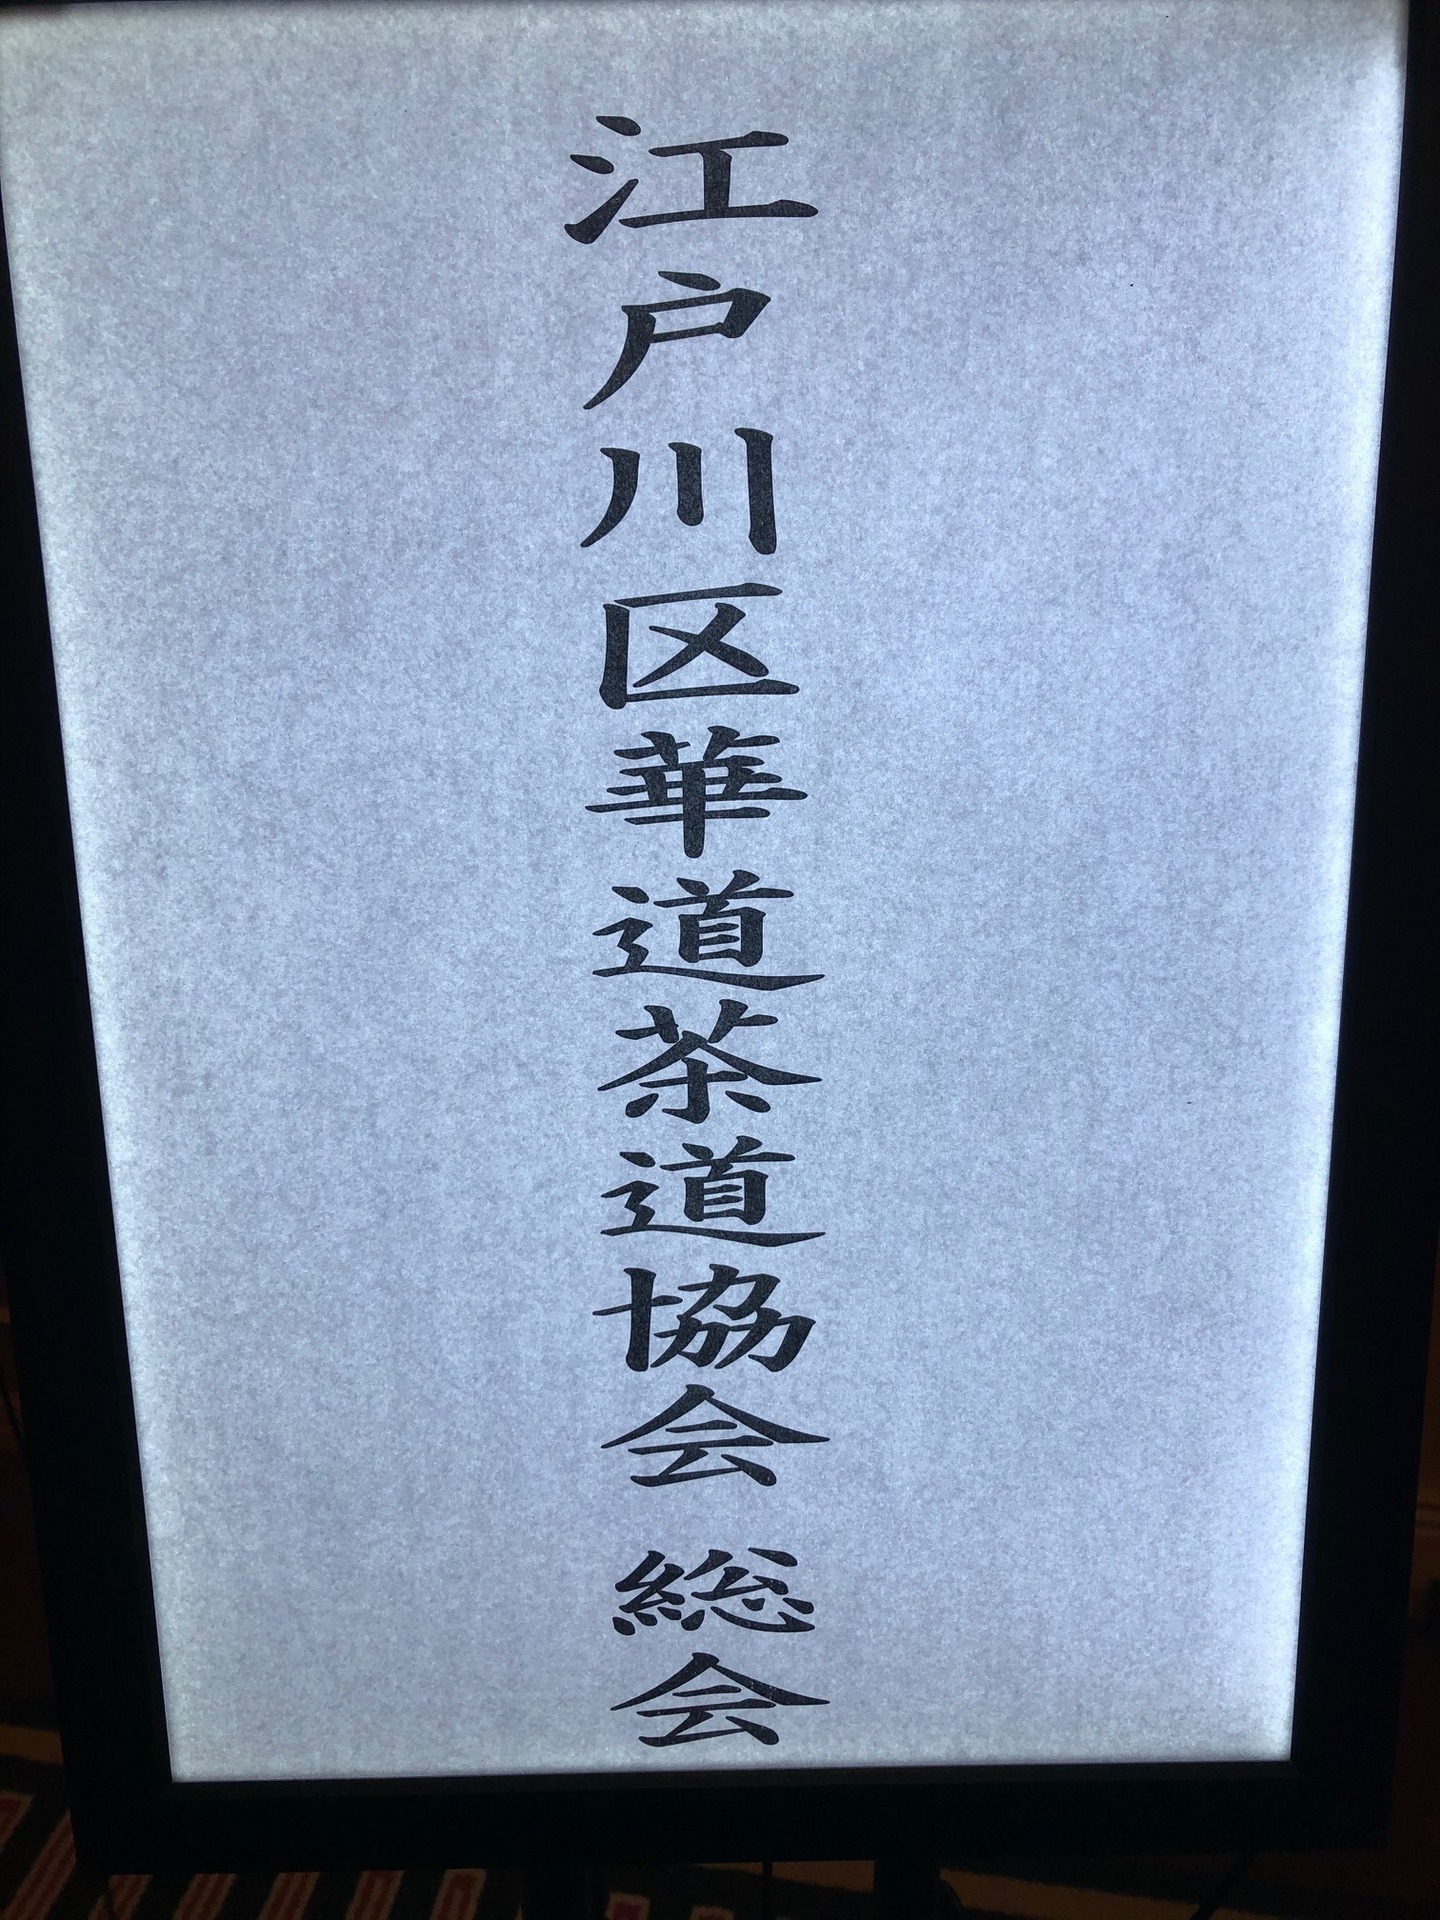 江戸川区華道茶道協会 総会